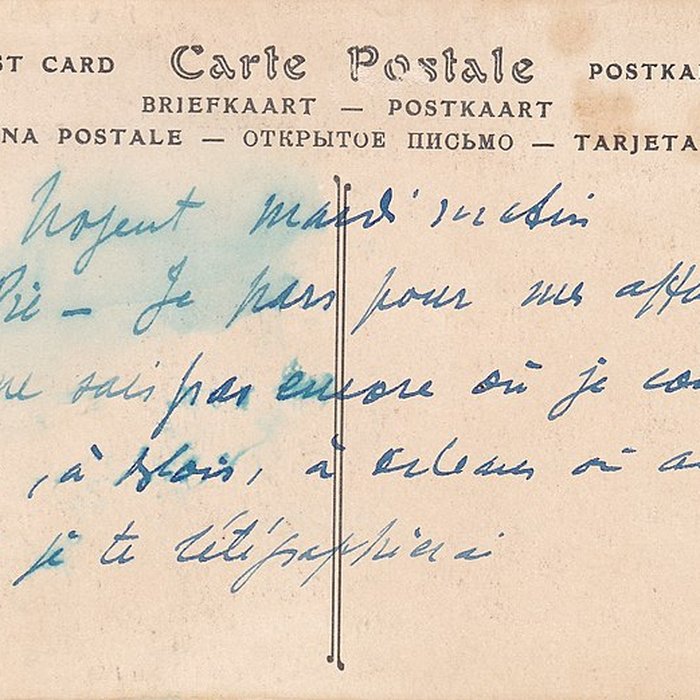 ST CARD Carte Postale POSTKA
BRIEFKAART — POSTKAART
NA POSTALE — ОТКРЫТОЕ ПИСЬМО — TARJETA
Nogent mardi matin
— Je pars pour mes affa
ne sais pas encore où je cou
, à Blois, à Orléans où a
je te télégraphierai